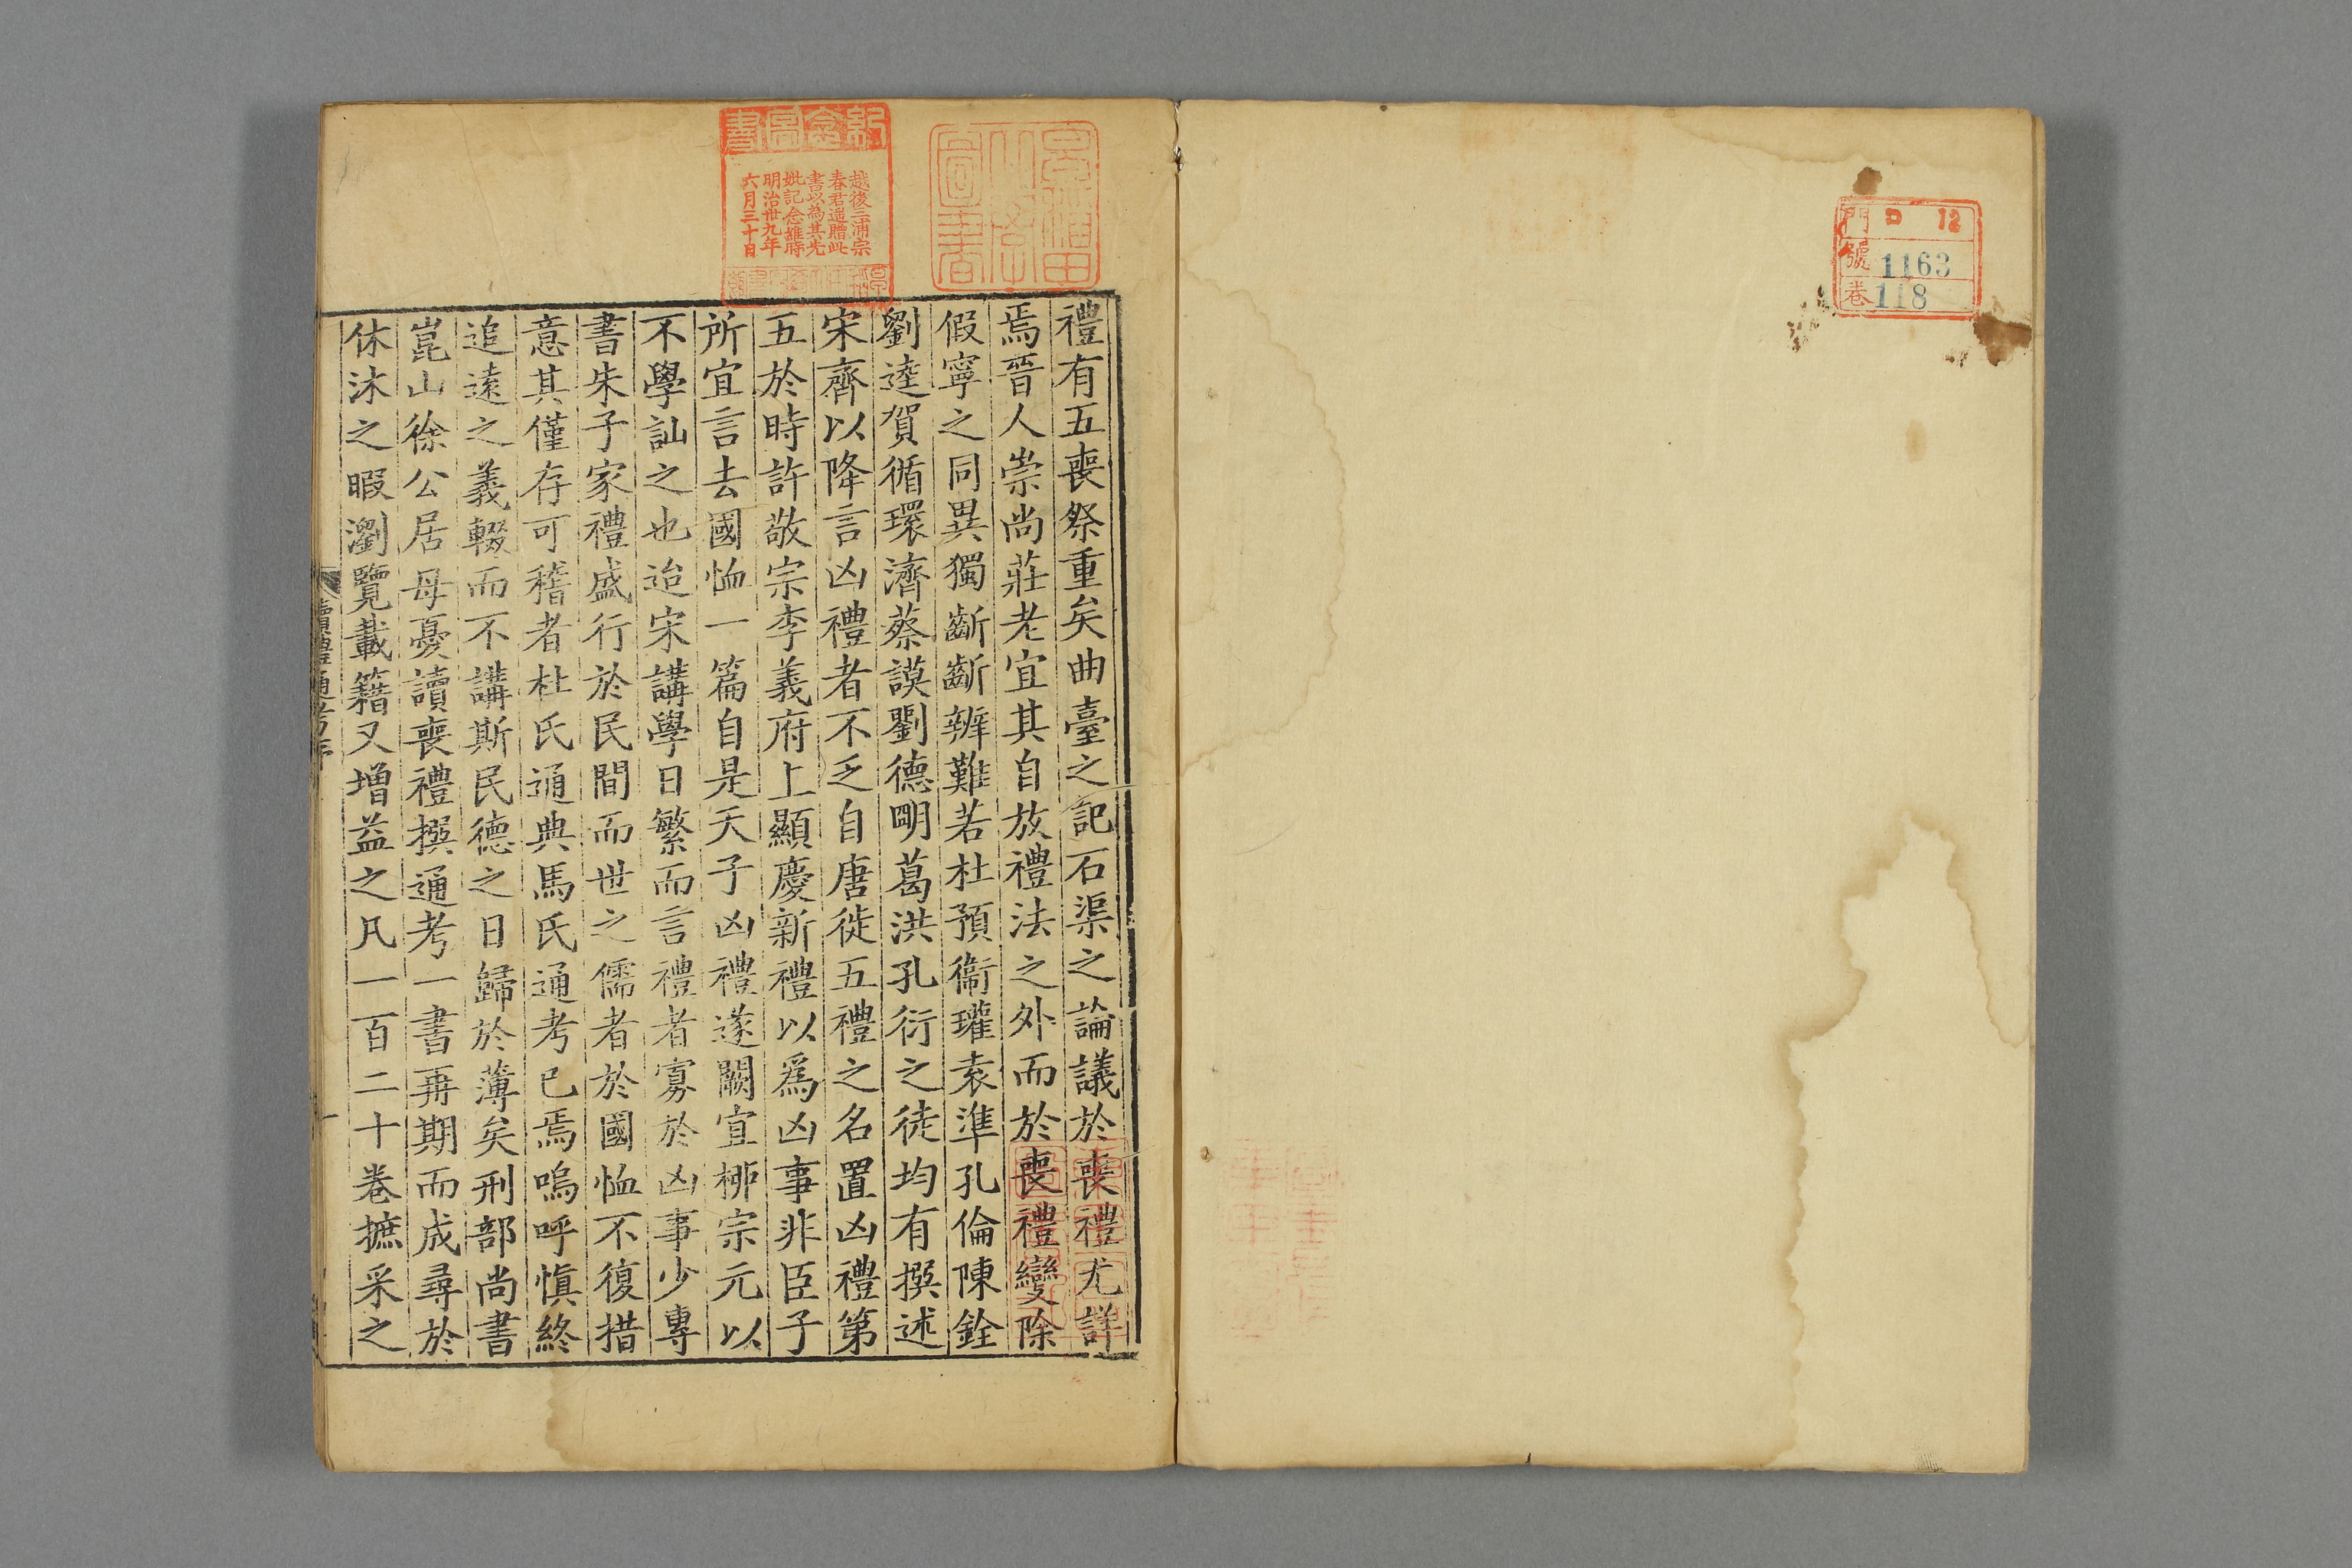 門 ロ 12
號 1163
卷 118
紀念圖書
越後三浦宗
春君遥贈此
書以為其先
妣記念維時
明治卅九年
六月三十日
禮有五喪祭重矣曲臺之記石渠之論議於喪禮尤詳
焉晉人崇尚莊老宜其自放禮法之外而於喪禮變除
假寧之同異獨齗齗辨難若杜預衞瓘袁準孔倫陳銓
劉逵賀循環濟蔡謨劉德明葛洪孔衍之徒均有撰述
宋齊以降言凶禮者不乏自唐徙五禮之名置凶禮第
五於時許敬宗李義府上顯慶新禮以爲凶事非臣子
所宜言去國恤一篇自是天子凶禮遂闕宜栁宗元以
不學訕之也迨宋講學日繁而言禮者寡於凶事少專
書朱子家禮盛行於民間而世之儒者於國恤不復措
意其僅存可稽者杜氏通典馬氏通考已焉嗚呼愼終
追遠之義輟而不講斯民德之日歸於薄矣刑部尚書
崑山徐公居母憂讀喪禮撰通考一書再期而成尋於
休沐之暇瀏覽載籍又增益之凡一百二十卷摭采之
讀禮通考序
一